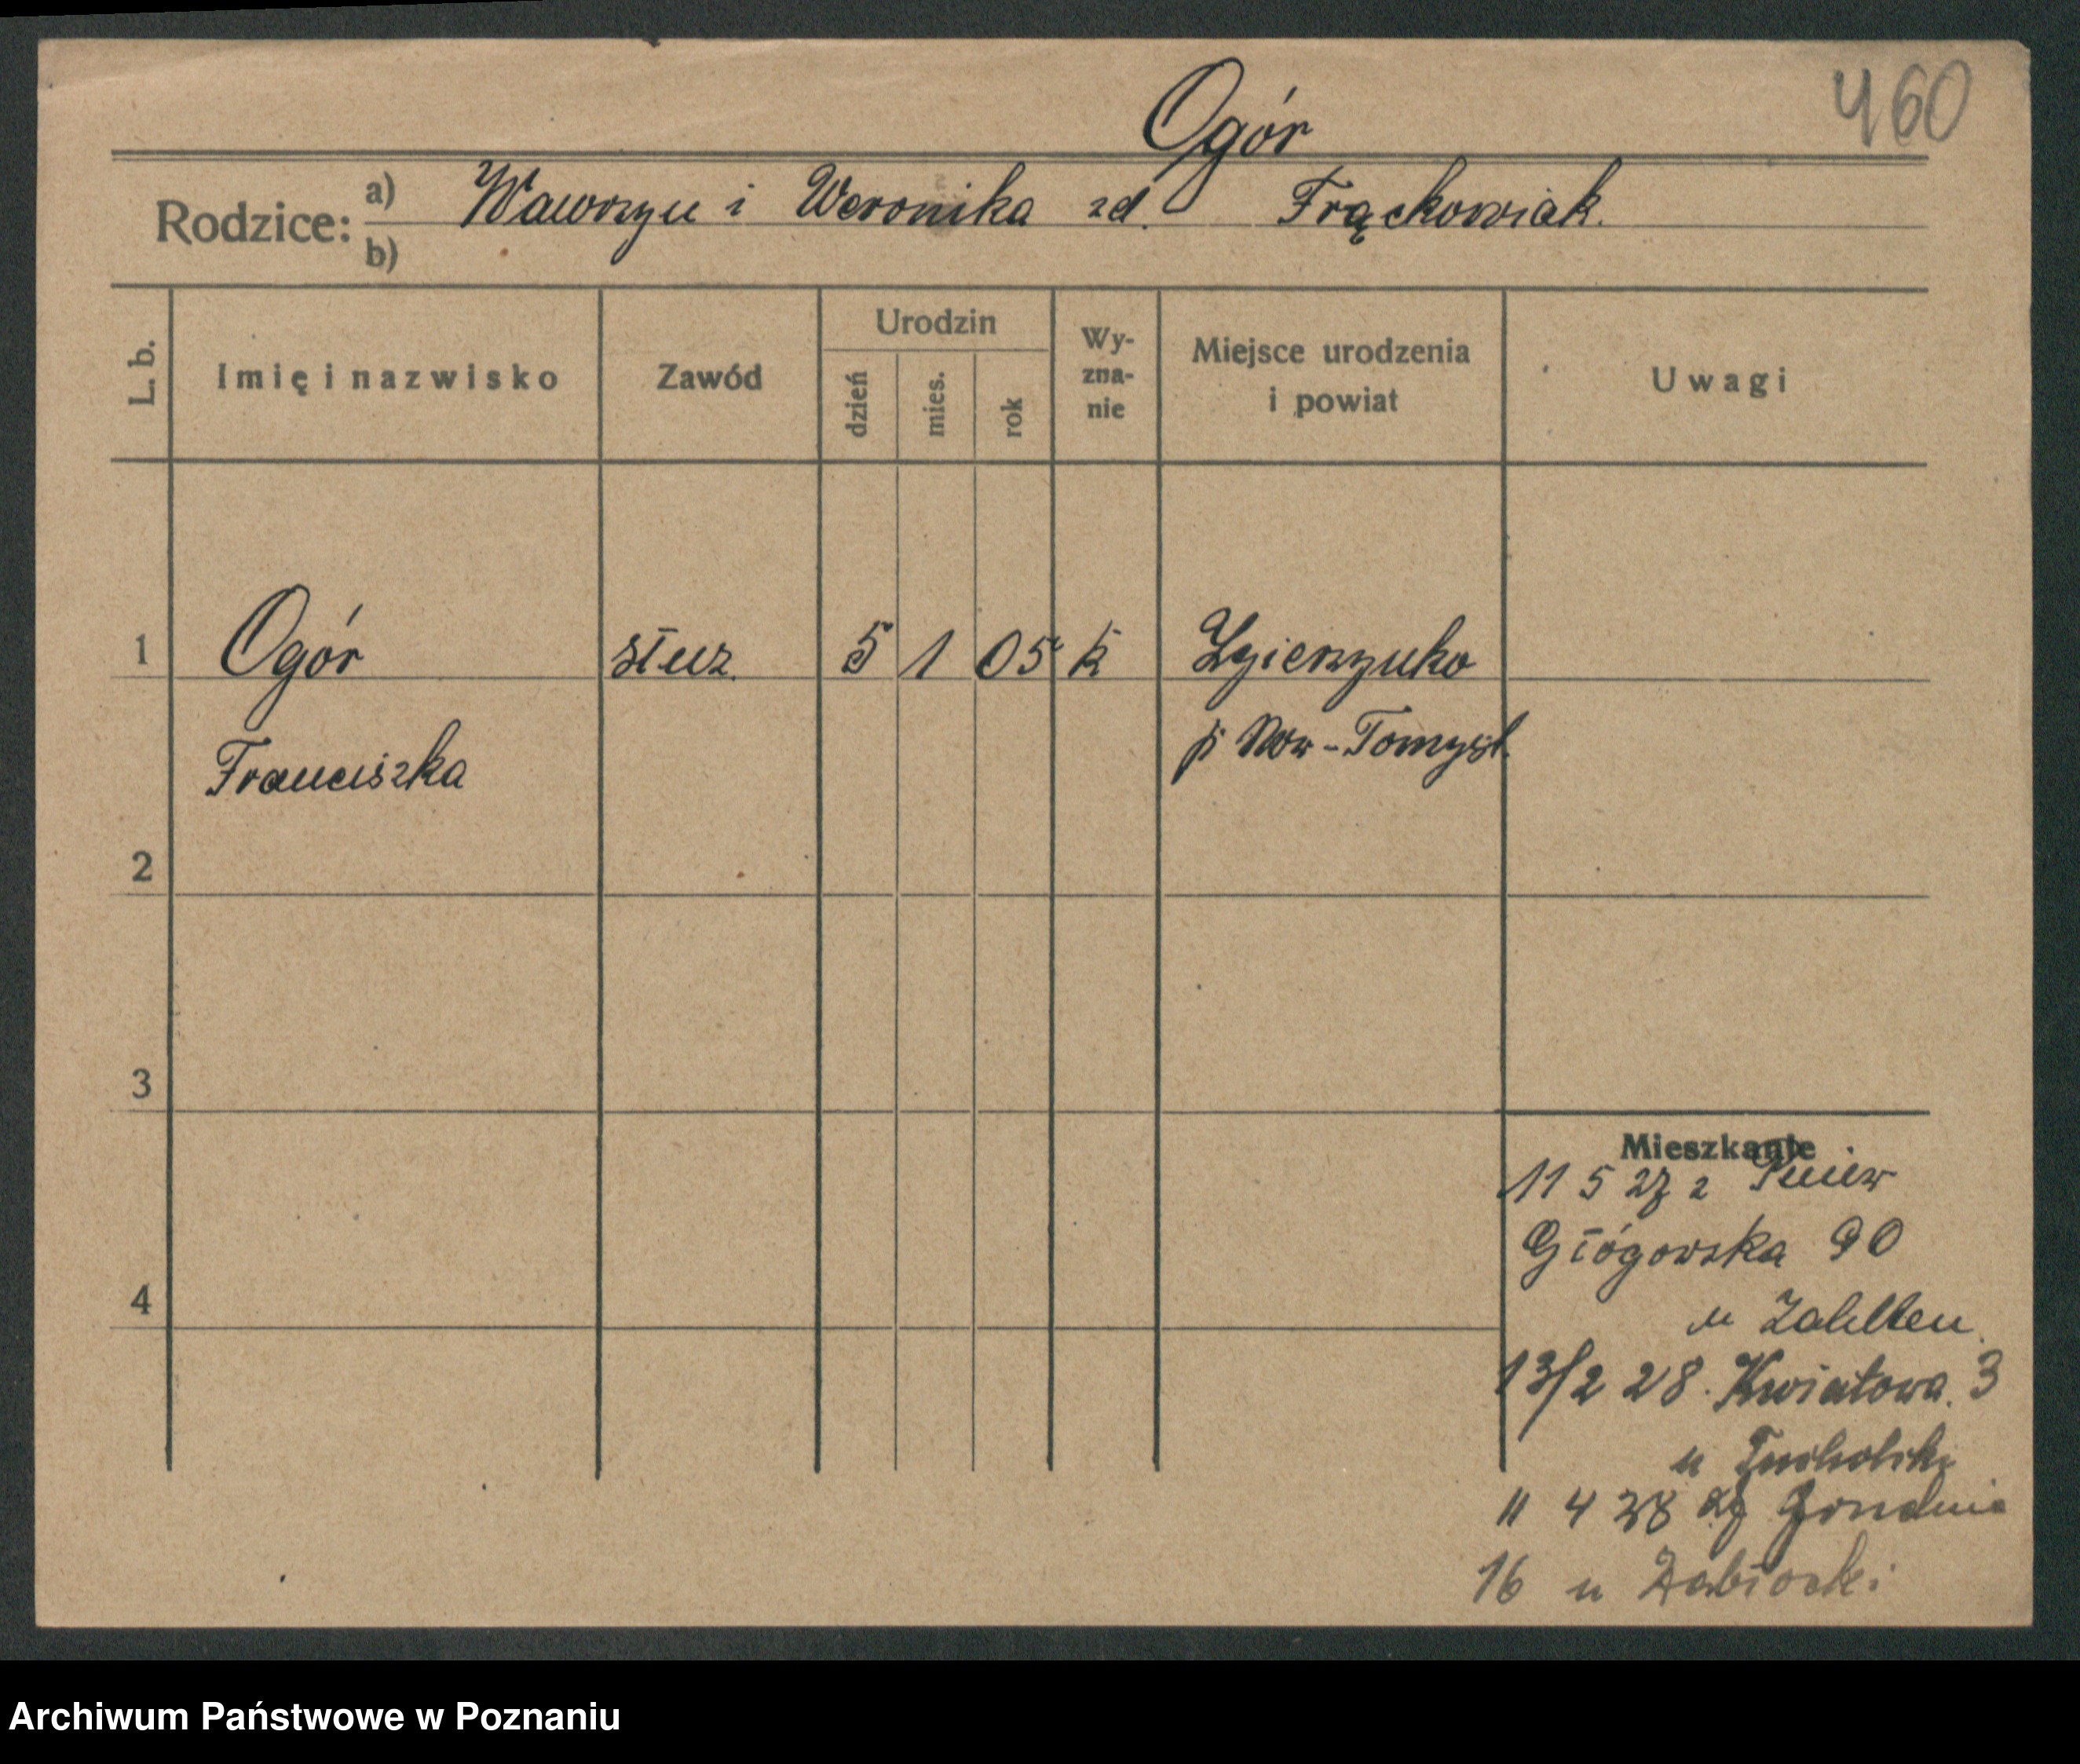 460
Ogór
Rodzice: a) Wawrzyn i Weronika zd. Frąckowiak.
b)
L. b.
Imię i nazwisko
Zawód
Urodzin
dzień
mies.
rok
Wy-
zna-
nie
Miejsce urodzenia
i powiat
Uwagi
1 Ogór służ. 5 1 05 k Zgierzynko
p Now-Tomyśl.
Franciszka
2
3
4
Mieszkanie
11 5 27 z Pniew
Głógowska 90
u
13/2 28. Kwiatowa. 3
u Tucholski
11 4 28
16 u
Archiwum Państwowe w Poznaniu